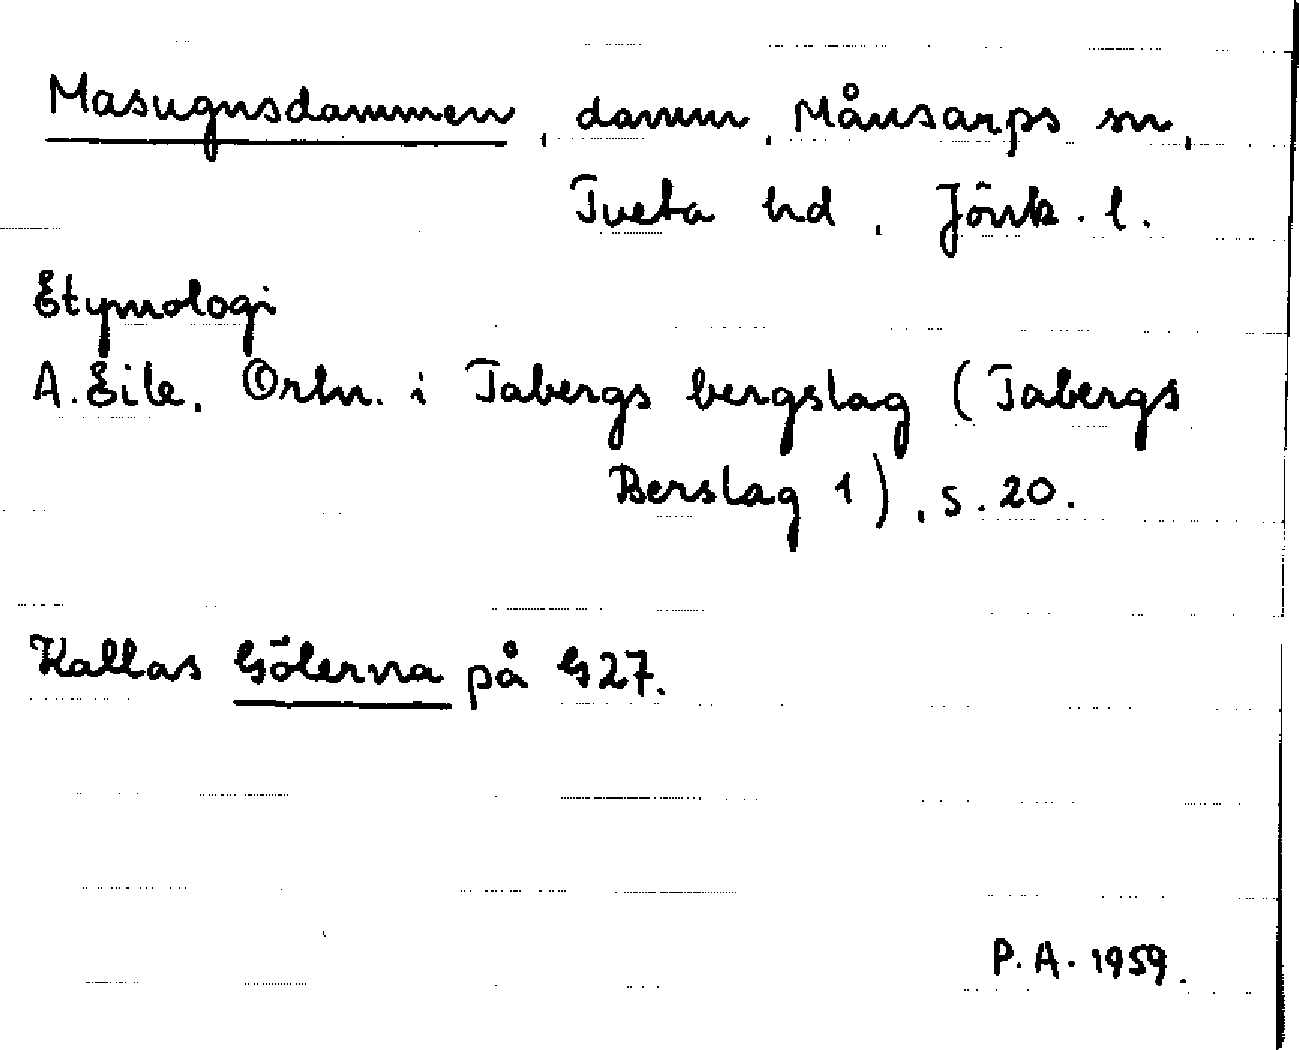 Masugnsdammen, damm, Månsarps sn,
Tveta hd, Jönk. l.
Etymologi
A. Eile, Ortn. i Tabergs bergslag (Tabergs
Berslag 1), s. 20.
Kallas Gölerna på G27.
P. A. 1959.